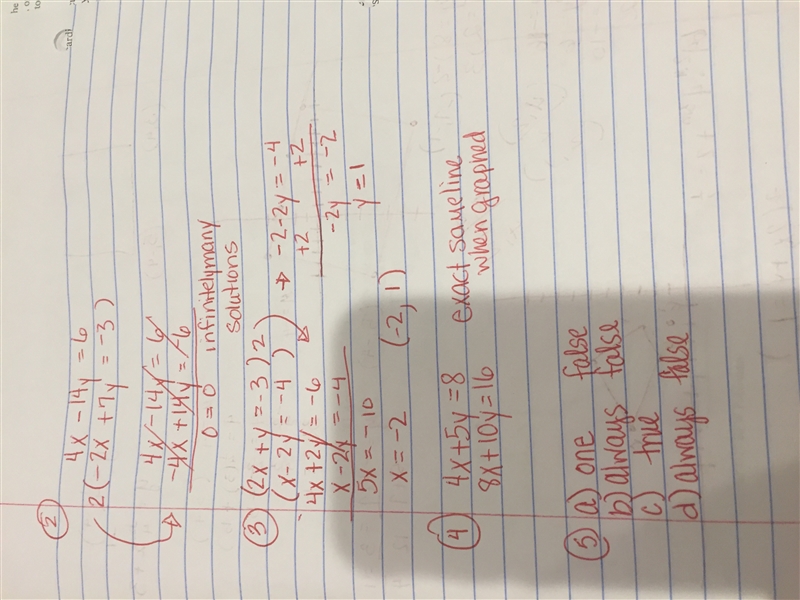 he
to
card!
②
4x - 14y = 6
2(-2x + 7y = -3)
4x - 14y = 6
-4x + 14y = -6
0 = 0 infinitely many
solutions
③ (2x + y = -3)2
(x - 2y = -4)
4x + 2y = -6
x - 2y = -4
5x = -10
x = -2 (-2, 1)
→ -2 - 2y = -4
+2 +2
-2y = -2
y = 1
④ 4x + 5y = 8 exact same line
8x + 10y = 16 when graphed
⑤ a) one false
b) always false
c) true
d) always false.